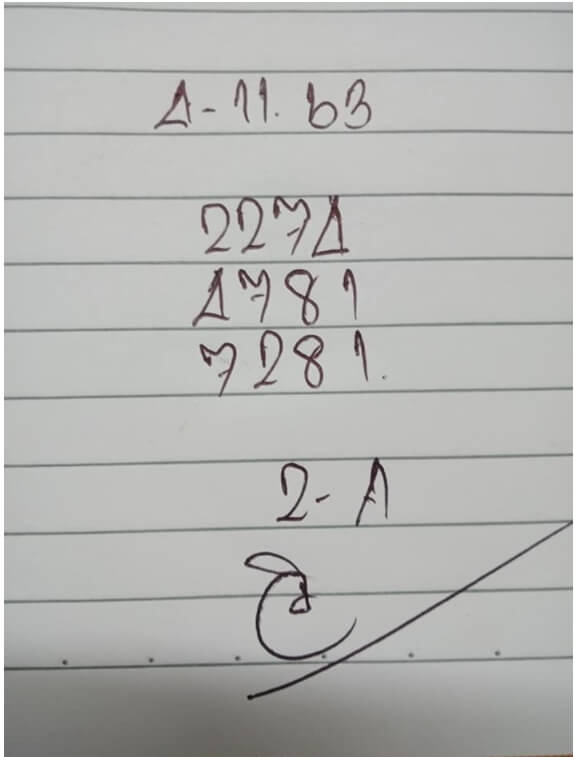 4-11.63
2274
4781
7281.
2- A